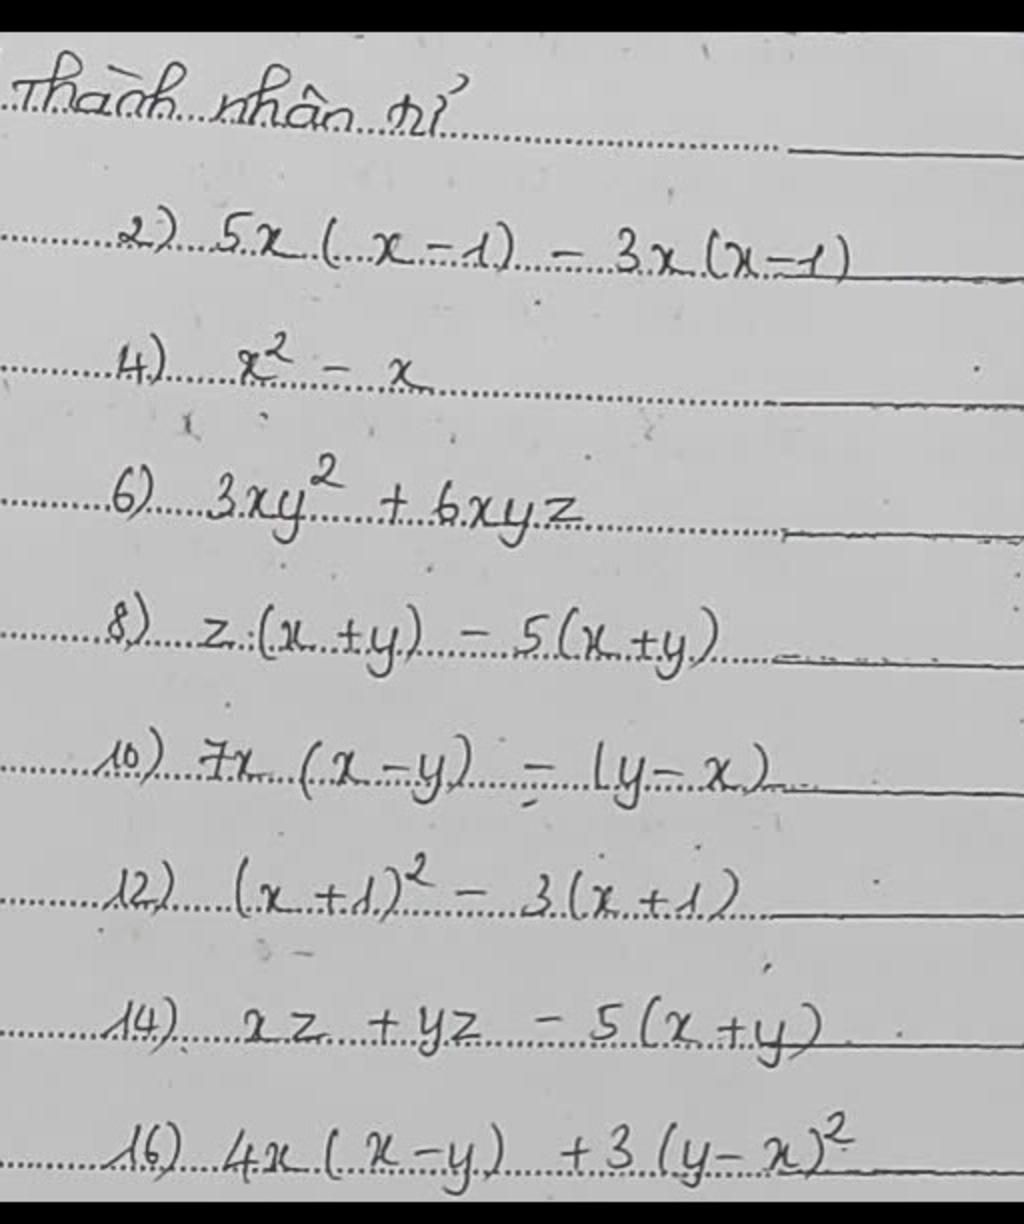 Thành nhân tử
2) 5x (x - 1) - 3x (x - 1)
4) x² - x
6) 3xy² + 6xyz
8) z (x + y) - 5(x + y)
10) 7x (x - y) - (y - x)
12) (x + 1)² - 3(x + 1)
14) xz + yz - 5(x + y)
16) 4x (x - y) + 3 (y - x)²